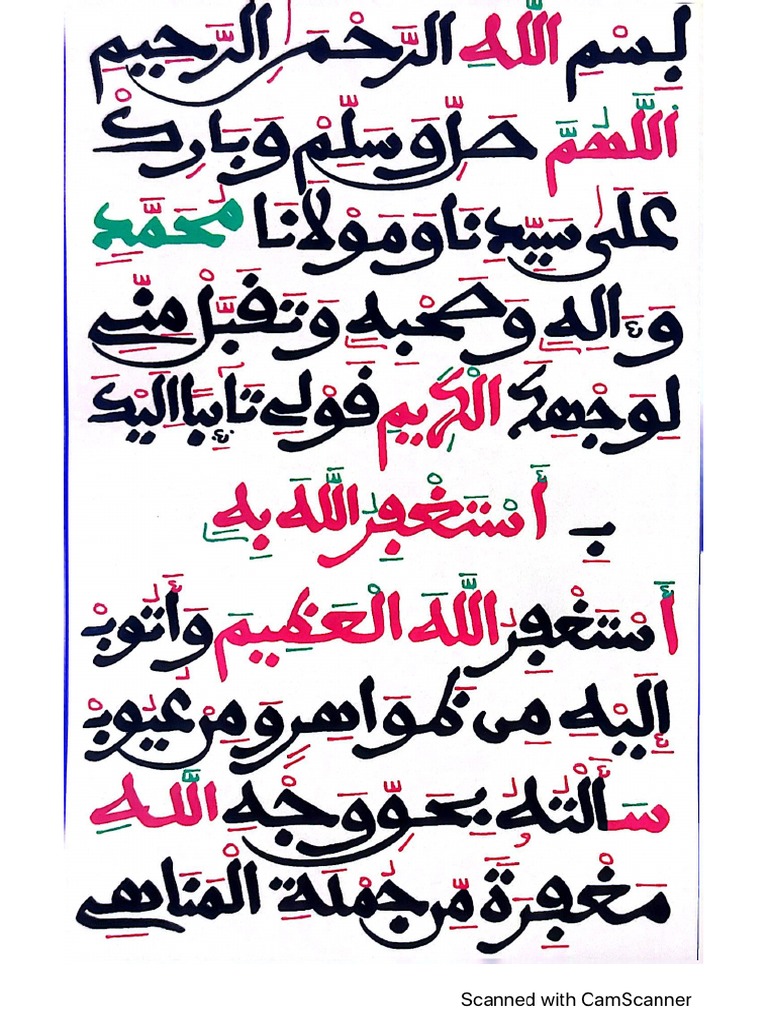 بِسْمِ اللَّهِ الرَّحْمَٰنِ الرَّحِيمِ
اَللَّهُمَّ صَلِّ وَسَلِّمْ وَبَارِكْ
عَلَىٰ سَيِّدِنَا وَمَوْلَانَا مُحَمَّدٍ
وَءَالِهِ وَصَحْبِهِ وَتَقَبَّلْ مِنِّي
لِوَجْهِكَ الْكَرِيمِ قَوْلِي تَائِبًا إِلَيْكَ
بِ أَسْتَغْفِرُ اللَّهَ بِهِ
أَسْتَغْفِرُ اللَّهَ الْعَظِيمَ وَأَتُوبُ
إِلَيْهِ مِن ظَوَاهِرٍ وَمِنْ عُيُوبْ
سَأَلْتُهُ بِحَقِّ وَجْهِ اللَّهِ
مَغْفِرَةً مِّن جُمْلَةِ الْمَنَاهِي
Scanned with CamScanner